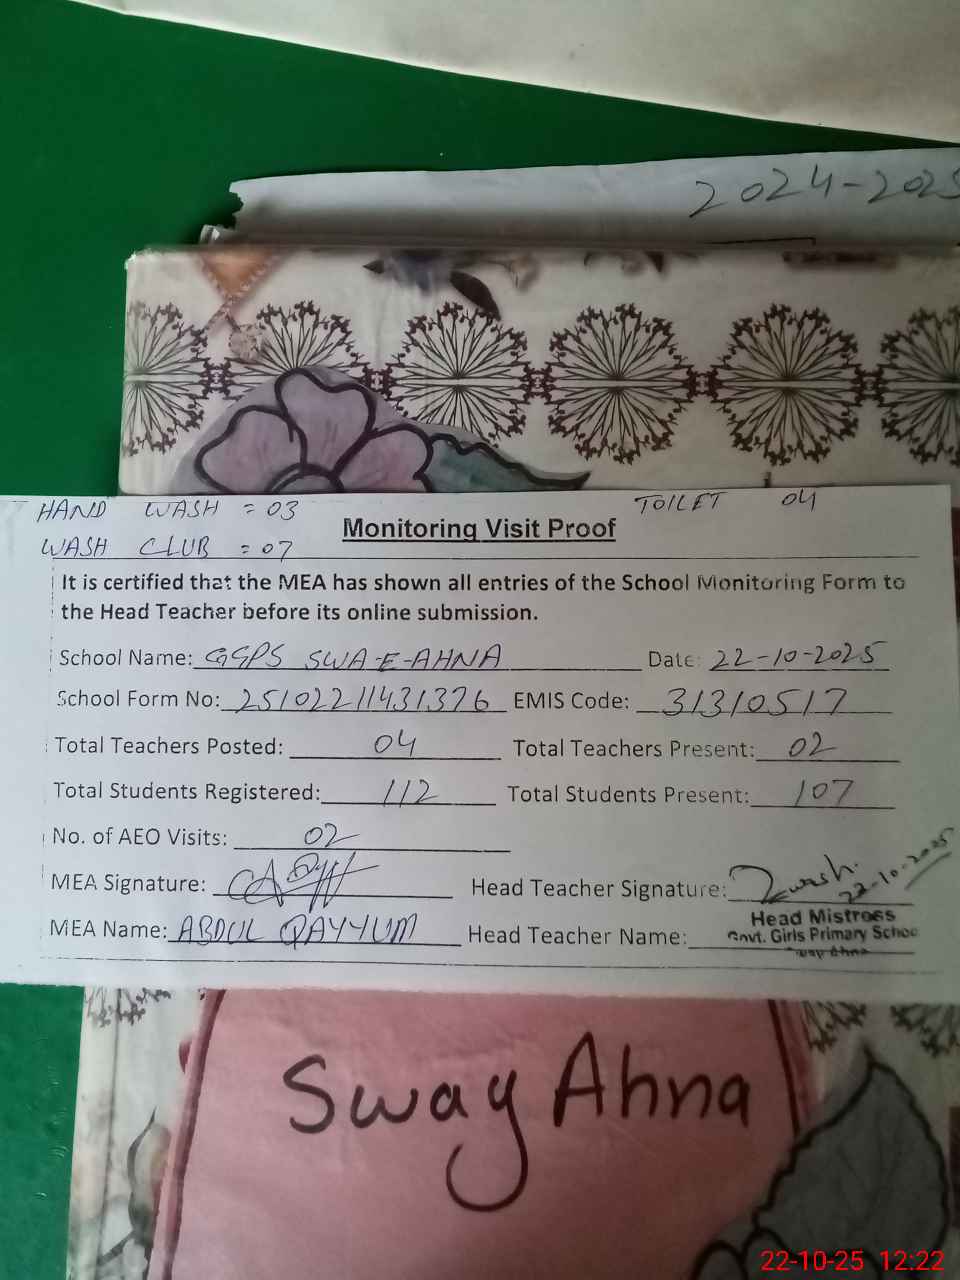 2024-2025
HAND WASH = 03
TOILET 04
WASH CLUB = 07
Monitoring Visit Proof
It is certified that the MEA has shown all entries of the School Monitoring Form to
the Head Teacher before its online submission.
School Name: GGPS SWA-E-AHNA Date: 22-10-2025
School Form No: 25102211431376 EMIS Code: 31310517
Total Teachers Posted: 04 Total Teachers Present: 02
Total Students Registered: 112 Total Students Present: 107
No. of AEO Visits: 02
MEA Signature: Head Teacher Signature: 22-10-2025
MEA Name: ABDUL QAYYUM Head Teacher Name:
Head Mistress
Govt. Girls Primary School
Sway Ahna
Sway Ahna
22-10-25 12:22